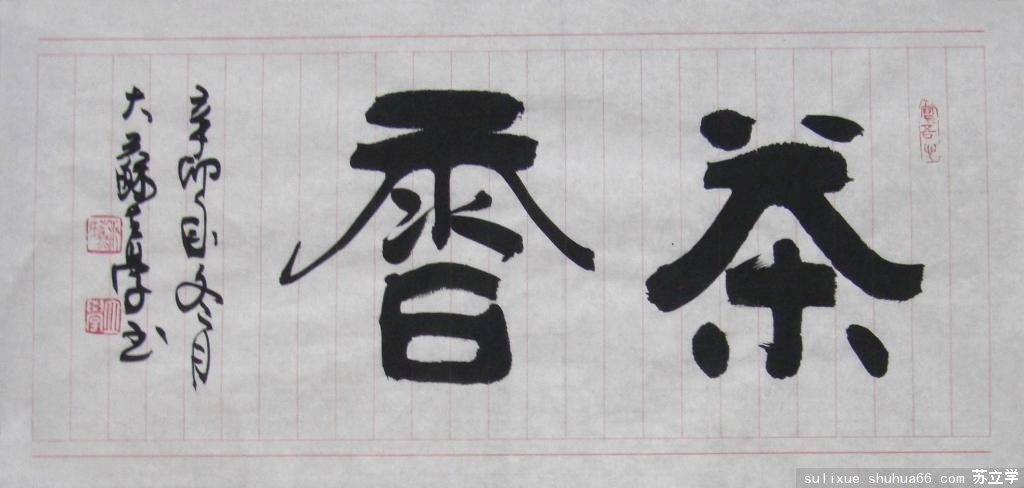 茶香
辛卯冬月
大蘇立学书
sulixue.shuhua66.com 苏立学